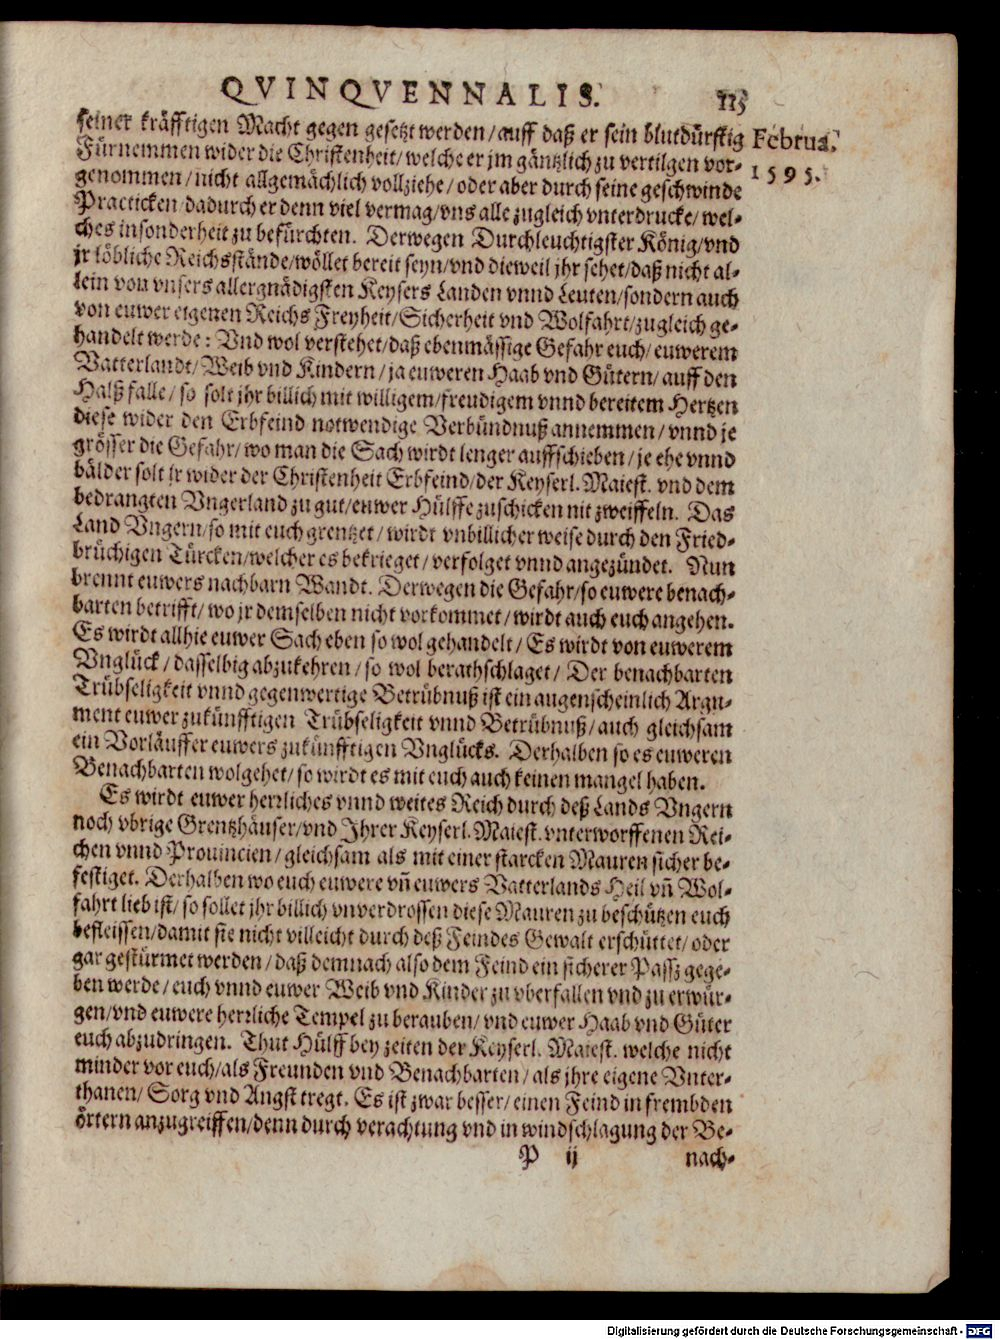 QVINQVENNALIS. 115
seiner kräfftigen Macht gegen gesetzt werden/auff daß er sein blutdürstig
Februa.
1595.
Fürnemmen wider die Christenheit/welche er jm gäntzlich zu vertilgen vor-
genommen/nicht allgemächlich vollziehe/oder aber durch seine geschwinde
Practicken/dadurch er denn viel vermag/vns alle zugleich vnterdrucke/wel-
ches insonderheit zu befürchten. Derwegen Durchleuchtigster König/vnd
jr löbliche Reichsstände/wöllet bereit seyn/vnd dieweil jhr sehet/daß nicht al-
lein von vnsers allergnädigsten Keysers Landen vnnd Leuten/sondern auch
von euwer eigenen Reichs Freyheit/Sicherheit vnd Wolfahrt/zugleich ge-
handelt werde: Vnd wol verstehet/daß ebenmässige Gefahr euch/euwerem
Vatterlandt/Weib vnd Kindern/ja euweren Haab vnd Gütern/auff den
Halß falle/so solt jhr billich mit willigem/freudigem vnnd bereitem Hertzen
diese wider den Erbfeind notwendige Verbündnuß annemmen/vnnd je
grösser die Gefahr/wo man die Sach wirdt lenger auffschieben/je ehe vnnd
bälder solt jr wider der Christenheit Erbfeind/der Keyserl. Maiest. vnd dem
bedrangten Vngerland zu gut/euwer Hülffe zuschicken nit zweiffeln. Das
Land Vngern/so mit euch grentzet/wirdt vnbillicher weise durch den Fried-
brüchigen Türcken/welcher es bekrieget/verfolget vnnd angezündet. Nun
brennt euwers nachbarn Wandt. Derwegen die Gefahr/so euwere benach-
barten betrifft/wo jr demselben nicht vorkommet/wirdt auch euch angehen.
Es wirdt allhie euwer Sach eben so wol gehandelt/Es wirdt von euwerem
Vnglück/dasselbig abzukehren/so wol berathschlaget/Der benachbarten
Trübseligkeit vnnd gegenwertige Betrübnuß ist ein augenscheinlich Argu-
ment euwer zukünfftigen Trübseligkeit vnnd Betrübnuß/auch gleichsam
ein Vorläuffer euwers zukünfftigen Vnglücks. Derhalben so es euweren
Benachbarten wolgehet/so wirdt es mit euch auch keinen mangel haben.
Es wirdt euwer herrliches vnnd weites Reich durch deß Lands Vngern
noch vbrige Grentzhäuser/vnd Jhrer Keyserl. Maiest. vnterworffenen Rei-
chen vnnd Prouincien/gleichsam als mit einer starcken Mauren sicher be-
festiget. Derhalben wo euch euwere vñ euwers Vatterlands Heil vñ Wol-
fahrt lieb ist/so sollet jhr billich vnverdrossen diese Mauren zu beschützen euch
befleissen/damit sie nicht villeicht durch deß Feindes Gewalt erschüttet/oder
gar gestürmet werden/daß demnach also dem Feind ein sicherer Passz gege-
ben werde/euch vnnd euwer Weib vnd Kinder zu vberfallen vnd zu erwür-
gen/vnd euwere herrliche Tempel zu berauben/vnd euwer Haab vnd Güter
euch abzudringen. Thut Hülff bey zeiten der Keyserl. Maiest. welche nicht
minder vor euch/als Freunden vnd Benachbarten/als jhre eigene Vnter-
thanen/Sorg vnd Angst tregt. Es ist zwar besser/einen Feind in frembden
örtern anzugreiffen/denn durch verachtung vnd in windschlagung der Be-
P ij nach-
Digitalisierung gefördert durch die Deutsche Forschungsgemeinschaft - DFG